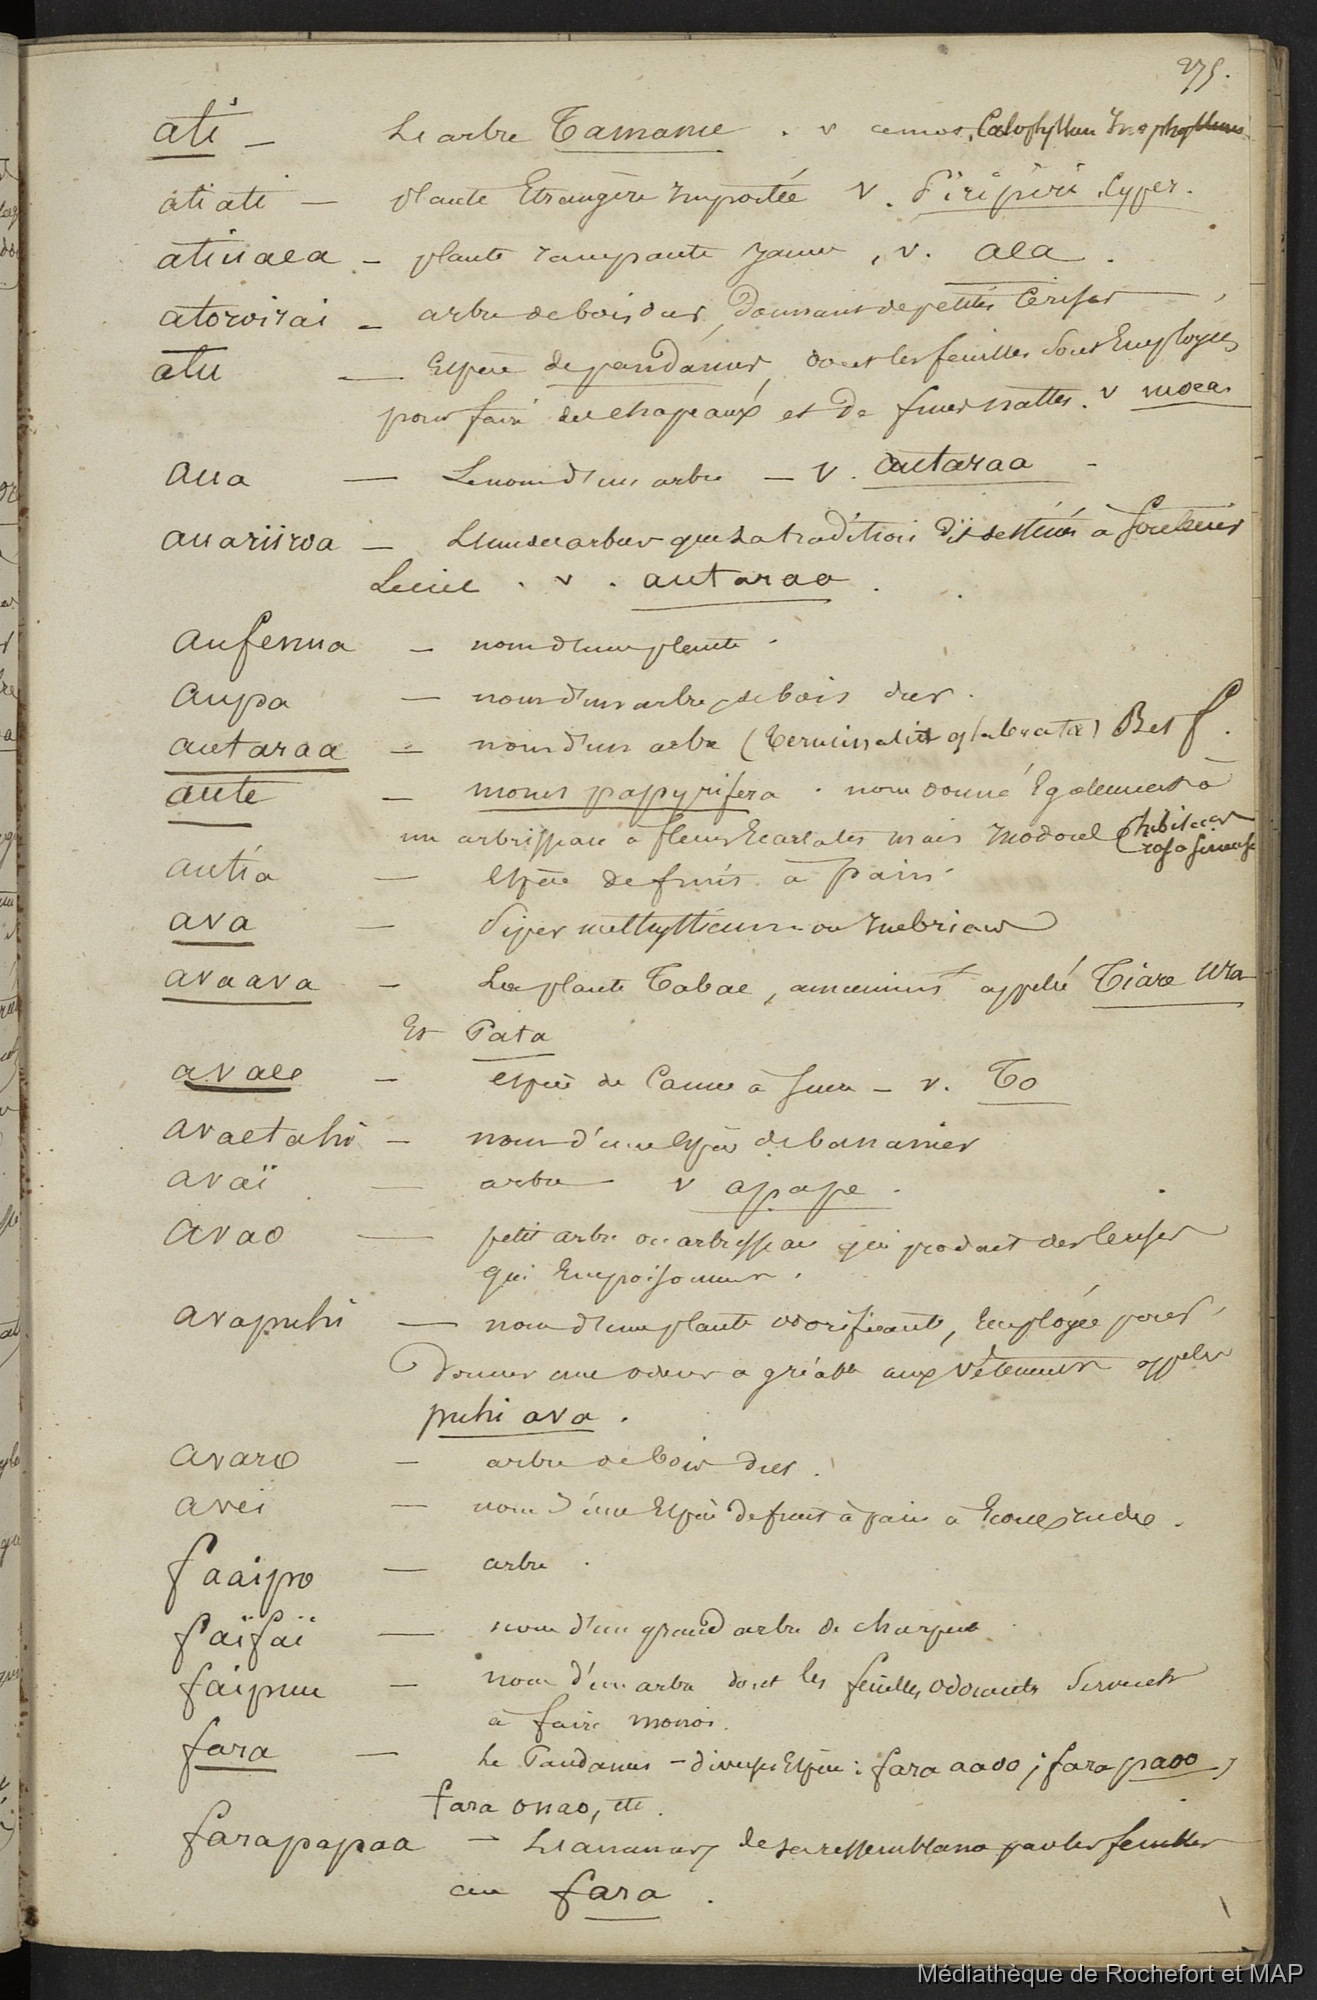 275.
ati — Le arbre Tamanu . v Calophyllum Inophyllum
atiati — plante Etrangère importée v. Piripiri Cyper.
atinaea — plante rampante jaune , v. aea .
atoroirai — arbre de bois dur, donnant de petites Cerises
atu — Espèce de pandanus, dont les feuilles sont Employées
pour faire des chapeaux et de fines nattes. v moea
aua — Le nom d'un arbre — v. autaraa
auariiroa — L'un des arbres que la tradition dit destinés à soutenir
Le ciel . v . autaraa .
aufenua — nom d'une plante .
aupa — nom d'un arbre, de bois dur .
autaraa — nom d'un arbre (terminalia glabrata) B et f .
aute — morus papyrifera . nom donné Egalement à
un arbrisseau à fleurs Ecarlates mais inodore (hibiscus
rosa sinensis
autia — Espèce de fruit à pain
ava — Piper methysticum ou inebrians
avaava — La plante Tabac, anciennement appelée Tiare Ura
Et Pata
avae — espèce de Canne à sucre — v. To
avaetahi — nom d'une Espèce de bananier
avaï — arbre v apape .
avao — petit arbre ou arbrisseau qui produit des Cerises
qui Empoisonnent .
avapuhi — nom d'une plante odorifiante, Employée pour
donner une odeur agréable aux vêtements appelée
puhi ava .
avaro — arbre de bois dur .
avei — nom d'une Espèce de fruit à pain à Ecorce rude .
faaipo — arbre .
faïfaï — nom d'un grand arbre de charpente
faipuu — nom d'un arbre dont les feuilles odorantes servent
à faire monoi .
fara — Le Pandanus — diverses Espèces : fara aaoo ; fara paoo ,
fara onao, etc .
farapapaa — L'ananas, de sa ressemblance par les feuilles
au fara .
Médiathèque de Rochefort et MAP